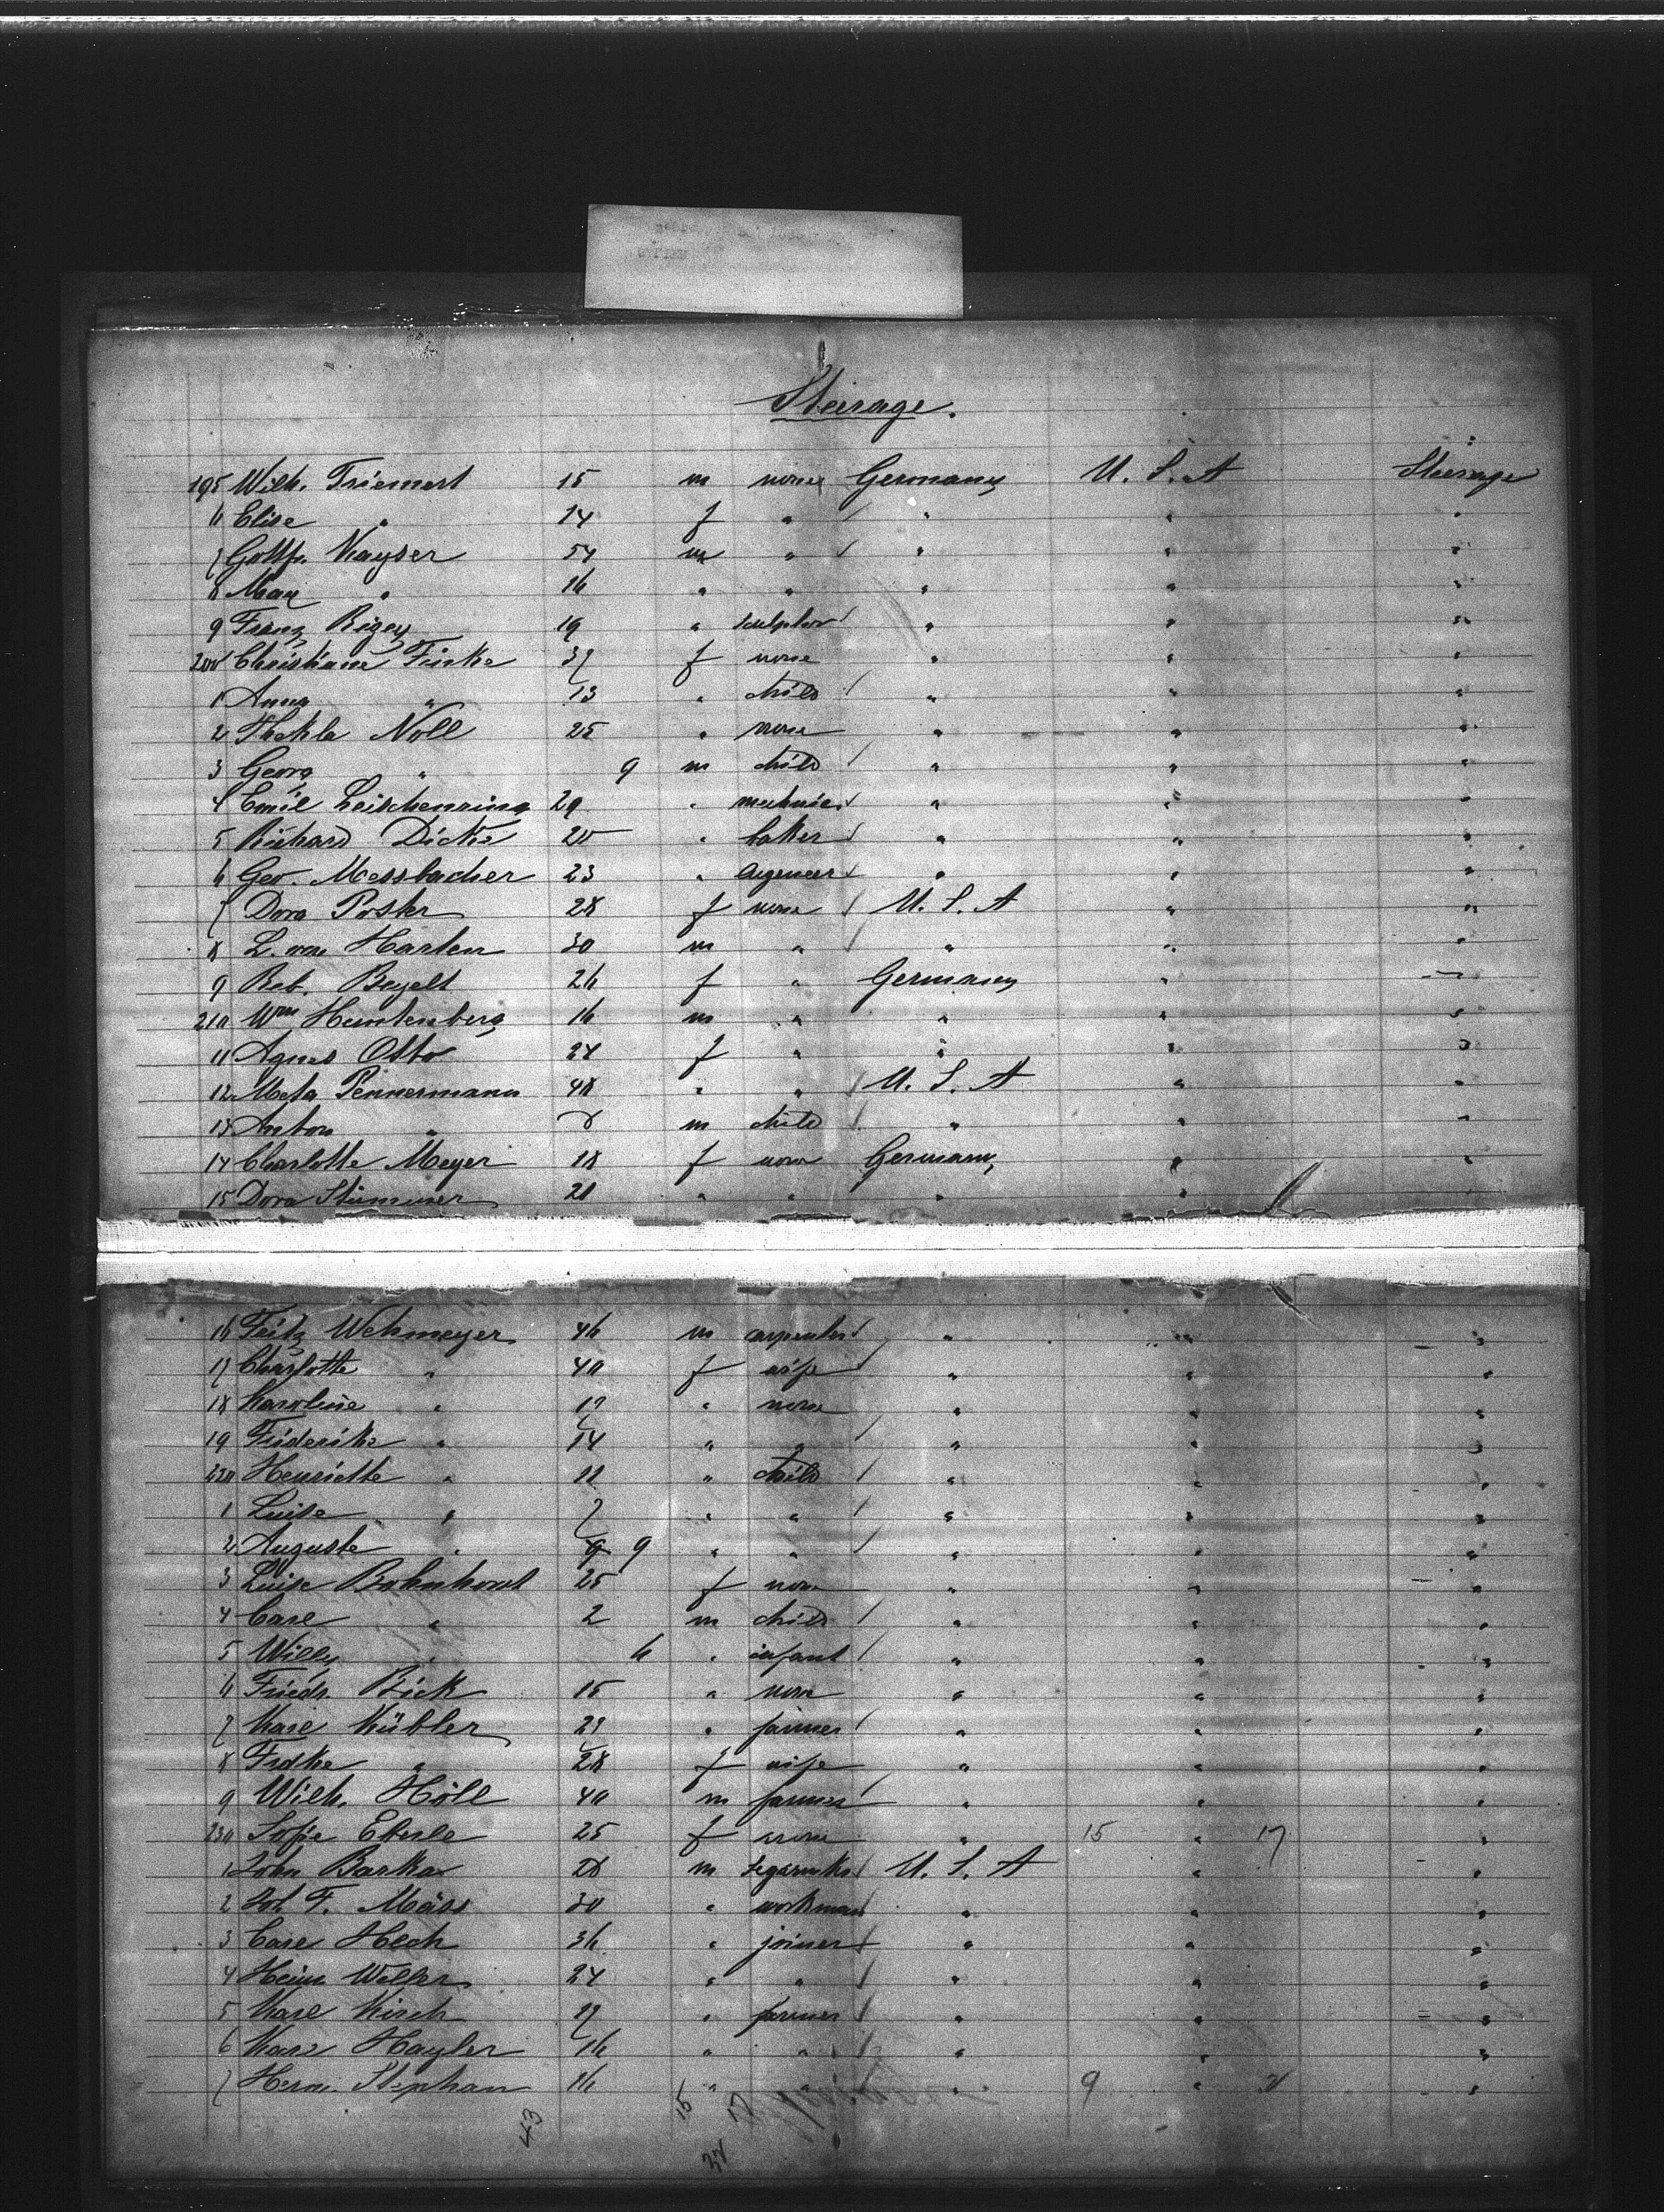 Steerage.
195 Wilh. Triemert 15 m none Germany U. S. A Steerage
6 Elise " 14 f " / " " "
7 Gottfr. Kayser 54 m " / " " "
8 Max " 16 " " " " "
9 Franz 19 " sculptor / " " "
200 Christiane Finke 37 f none " " "
1 Anna " 13 " child / " " "
2 Thekla Noll 25 " none " " "
3 Georg " 9 m child / " " "
4 Emil Leischenring 29 " mechnic / " " "
5 Richard Dicke 20 " baker / " " "
6 Geo. Messbacher 23 " / " " "
7 Dora Poster 28 f none / U. S. A " "
8 L. von Harten 30 m " / " " "
9 Reb. Begelt 26 f " Germany " "
210 Wm Huntenberg 16 m " " " "
11 Agnes Otto 24 f " " " "
12 Meta Pennermann 48 " " / U. S. A " "
13 Anton " 8 m child / " " "
14 Charlotte Meyer 18 f none Germany " "
15 Dora 21 " " " " "
16 Fritz Wehmeyer 46 m carpenter / " " "
17 Charlotte " 40 f wife / " " "
18 Karoline " 17 " none " " "
19 Friderike " 14 " " / " " "
220 Henriette " 11 " child / " " "
1 Luise " 7 " " / " " "
2 Auguste " 9 9 " " / " " "
3 Luise Bohnhorst 25 f none " " "
4 Carl " 2 m child / " " "
5 Willy " 6 " infant / " " "
6 Friedr. Bick 15 " none " " "
7 Karl Kübler 27 " farmer / " " "
8 Frdke " 28 f wife " " "
9 Wilh. Höll 40 m farmer / " " "
230 Sofie Eberle 25 f none " 15 " 17 "
1 John Barka 28 m / U. S. A " "
2 Joh. F. Mäss 30 " workman / " " "
3 Carl Hech 36 " joiner / " " "
4 Heinr. Weller 24 " " / " " "
5 Karl Kirsch 17 " farmer / " " "
6 Karl Hayler 16 " " / " " "
7 Herm. Stephan 16 " " " 9 " "
43 15 17
32